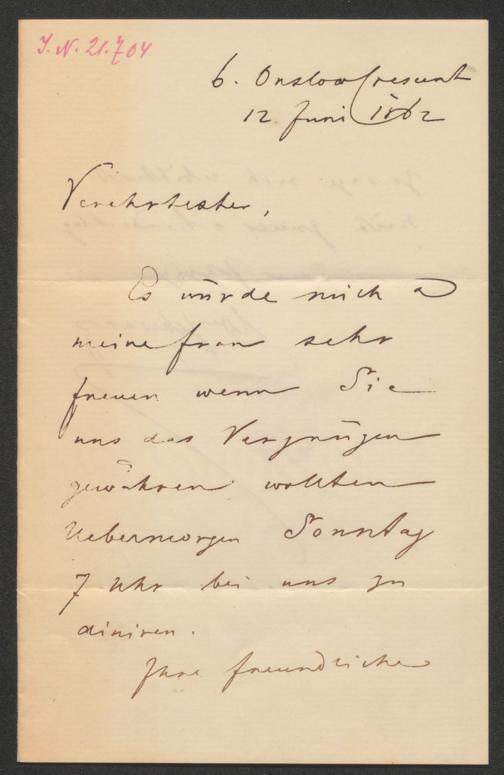 I.N. 21.704
6. Onslow Crescent
12 Juni 1862
Verehrtester,
Es würde mich u
meine Frau sehr
freuen wenn Sie
uns das Vergnügen
gewähren wollten
Uebermorgen Sonntag
7 Uhr bei uns zu
diniren.
Ihre freundliche